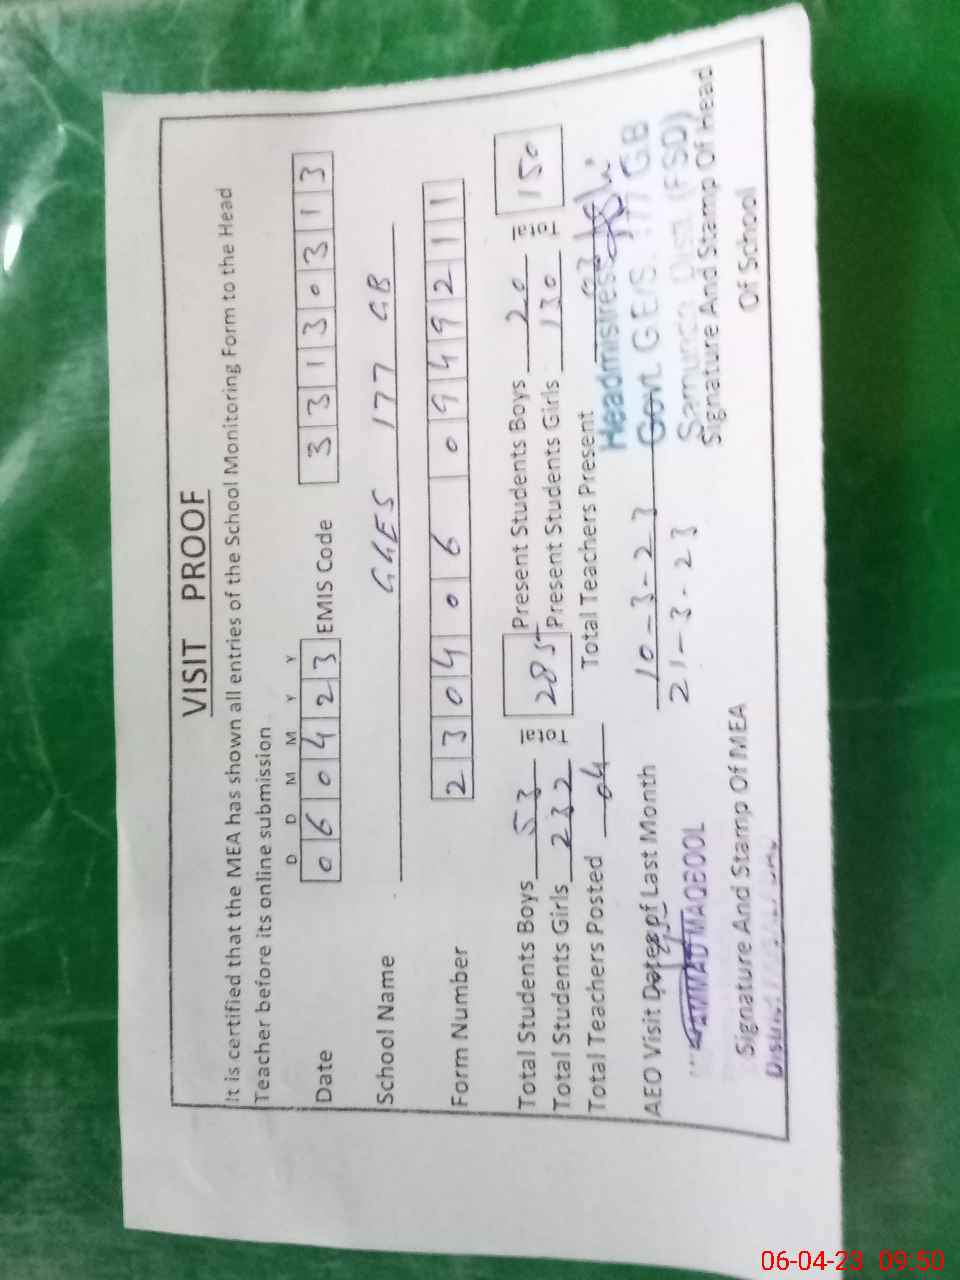 VISIT PROOF
It is certified that the MEA has shown all entries of the School Monitoring Form to the Head
Teacher before its online submission
D D M M Y Y
Date 0 6 0 4 2 3 EMIS Code 3 3 1 3 0 3 1 3
School Name GGES 177 GB
Form Number 2 3 0 4 0 6 0 9 4 9 2 1 1
Total Students Boys 53 Total 285 Present Students Boys 20 Total 150
Total Students Girls 232 Present Students Girls 130
Total Teachers Posted 04 Total Teachers Present 03
Headmistress
AEO Visit Dates of Last Month 10-3-23 Govt. GE/S. 177 GB
21-3-23 Samundri Dist (FSD)
MAQBOOL
Signature And Stamp Of MEA Signature And Stamp Of Head
Of School
06-04-23 09:50